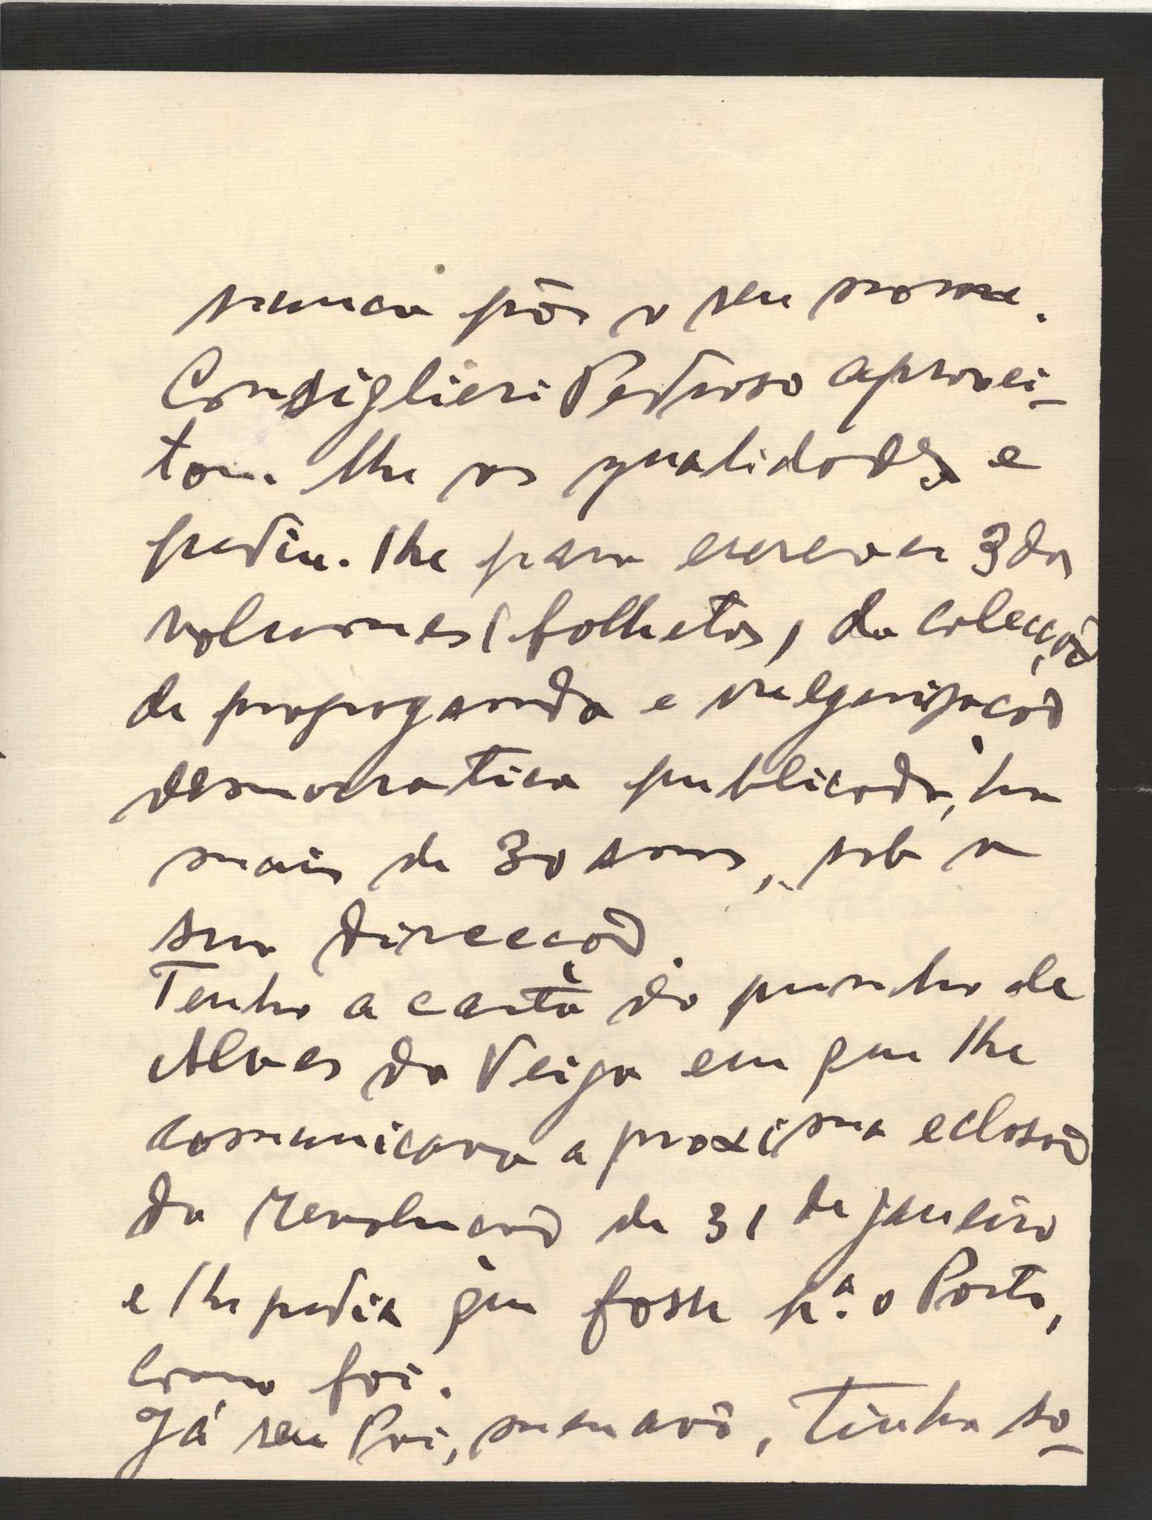 nunca pôs o seu nome.
Consiglieri Pedroso aprovei-
tou-lhe as qualidades e
pediu-lhe para escrever 3 dos
volumes (folhetos) da colecção
de propaganda e vulgarização
democratica publicada, ha
mais de 30 anos, sob a
sua direcção.
Tenho a carta do punho de
Alves da Veiga em que lhe
comunicava a proxima eclosão
da Revolução de 31 de janeiro
e lhe pedia que fosse pª. o Porto,
como foi.
Já seu Pai, meu avô, tinha so-